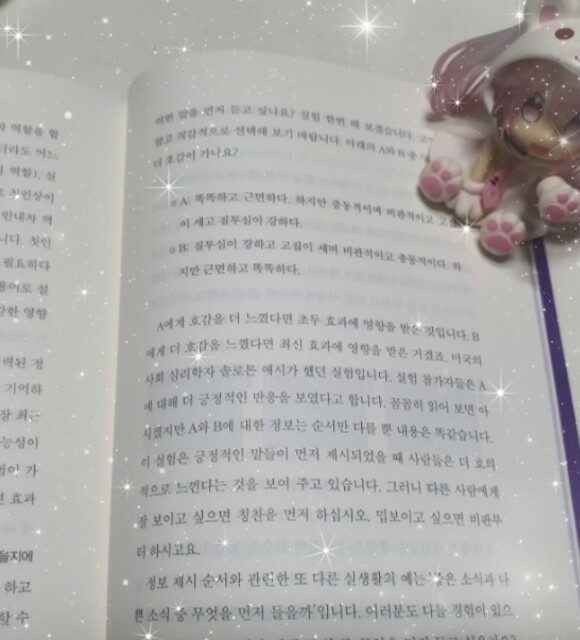 과 역할을 할
더라도 어느
역할). 실
첫인상이
안내자 역
니다. 첫인
필요하다
용어로 설
강한 영향
력된 정
기억하
장 최근
능성이
번이 가
효과
을지에
하고
할 수
어떤 말을 먼저 듣고 싶나요? 실험 한번 해 보겠습니다.
말고 직감적으로 선택해 보기 바랍니다. 아래의 A와 B 중
더 호감이 가나요?
o A: 똑똑하고 근면하다. 하지만 충동적이며 비판적이고 고집
이 세고 질투심이 강하다.
o B: 질투심이 강하고 고집이 세며 비판적이고 충동적이다. 하
지만 근면하고 똑똑하다.
A에게 호감을 더 느꼈다면 초두 효과에 영향을 받은 것입니다. B
에게 더 호감을 느꼈다면 최신 효과에 영향을 받은 거겠죠. 미국의
사회 심리학자 솔로몬 애시가 했던 실험입니다. 실험 참가자들은 A
에 대해 더 긍정적인 반응을 보였다고 합니다. 꼼꼼히 읽어 보면 아
시겠지만 A와 B에 대한 정보는 순서만 다를 뿐 내용은 똑같습니다.
이 실험은 긍정적인 말들이 먼저 제시되었을 때 사람들은 더 호의
적으로 느낀다는 것을 보여 주고 있습니다. 그러니 다른 사람에게
잘 보이고 싶으면 칭찬을 먼저 하십시오. 밉보이고 싶으면 비판부
터 하시고요.
정보 제시 순서와 관련한 또 다른 실생활의 예는 '좋은 소식과 나
쁜 소식 중 무엇을 먼저 들을까'입니다. 여러분도 다들 경험이 있으